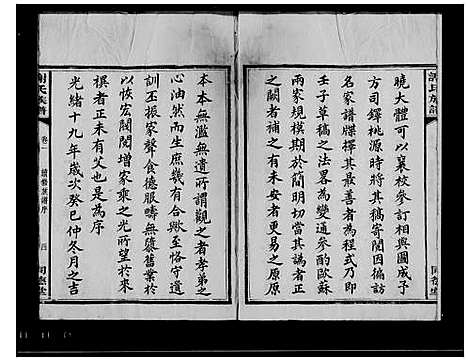 曉大體可以襄校參訂相與圖成子
方司鐸桃源時將其稿寄閱因倩訪
名家譜牒擇其最善者為程式乃即
壬子草稿之法畧為變通參酌歐蘇
兩家規模期於簡明切當其譌者正
之闕者補之有未安者更易之原原
本本無濫無遺所謂觀之者孝弟之
心油然而生庶幾有合歟至恪守遺
訓丕振家聲食德服疇無隳舊業於
以恢宏閥閱增家乘之光所望於來
禩者正未有艾也是為序
光緒十九年歲次癸巳仲冬月之吉
謝氏族譜
卷一
續修族譜序
四